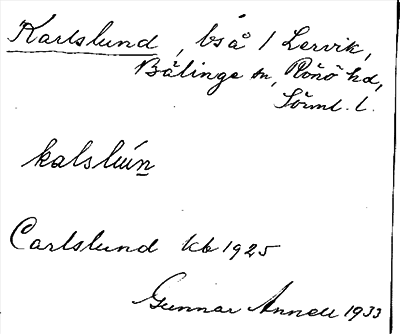 Karlslund, bså / Lervik,
Bälinge sn, Rönö hd,
Sörml. l.
kalslún
Carlslund kb 1925
Gunnar Annell 1933